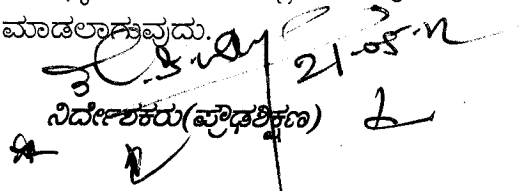 ಮಾಡಲಾಗುವುದು.
21-05-12
ನಿರ್ದೇಶಕರು(ಪ್ರೌಢಶಿಕ್ಷಣ)